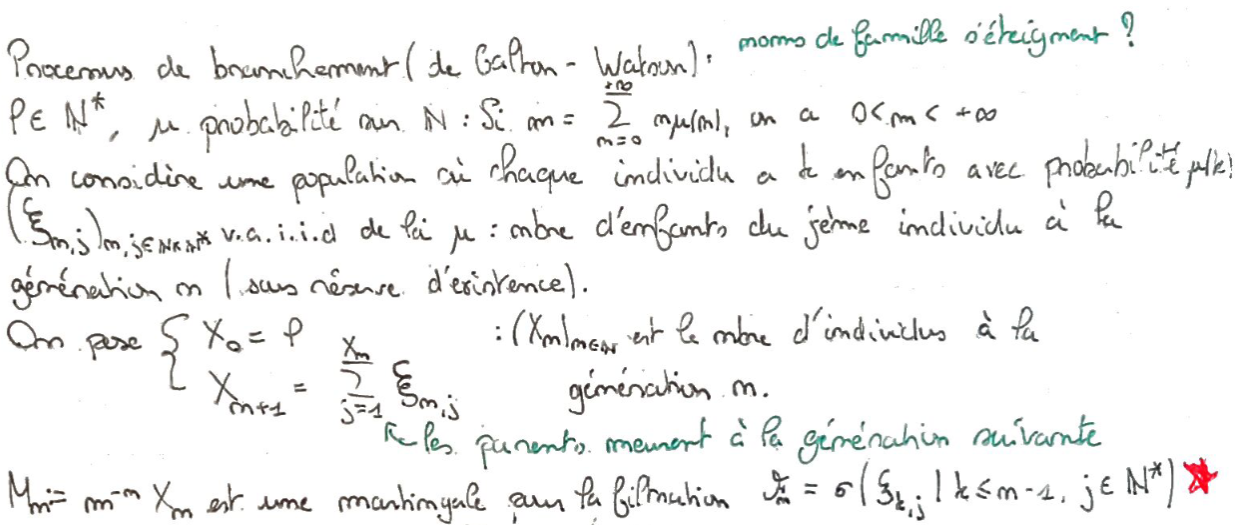 Processus de branchement (de Galton-Watson) : noms de famille s'éteignent ?
ℓ ∈ ℕ*, μ probabilité sur ℕ : Si m = ∑_{n=0}^{+∞} nμ(n), on a 0 < m < +∞
On considère une population où chaque individu a k enfants avec probabilité μ(k)
(ξ_{n,j})_{n,j∈ℕ×ℕ*} v.a.i.i.d de loi μ : nbre d'enfants du jème individu à la
génération n (sous réserve d'existence).
On pose { X_0 = ℓ : (X_n)_{n∈ℕ} est le nbre d'individus à la
X_{n+1} = ∑_{j=1}^{X_n} ξ_{n,j} génération n.
↖ les parents meurent à la génération suivante
M_n := m^{-n} X_n est une martingale pour la filtration ℱ_n = σ(ξ_{k,j} | k ≤ n-1, j ∈ ℕ*) ★